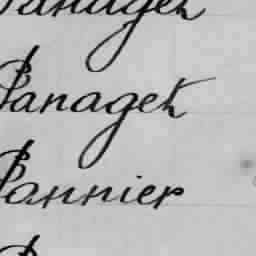 Panaget
Panaget
Pannier